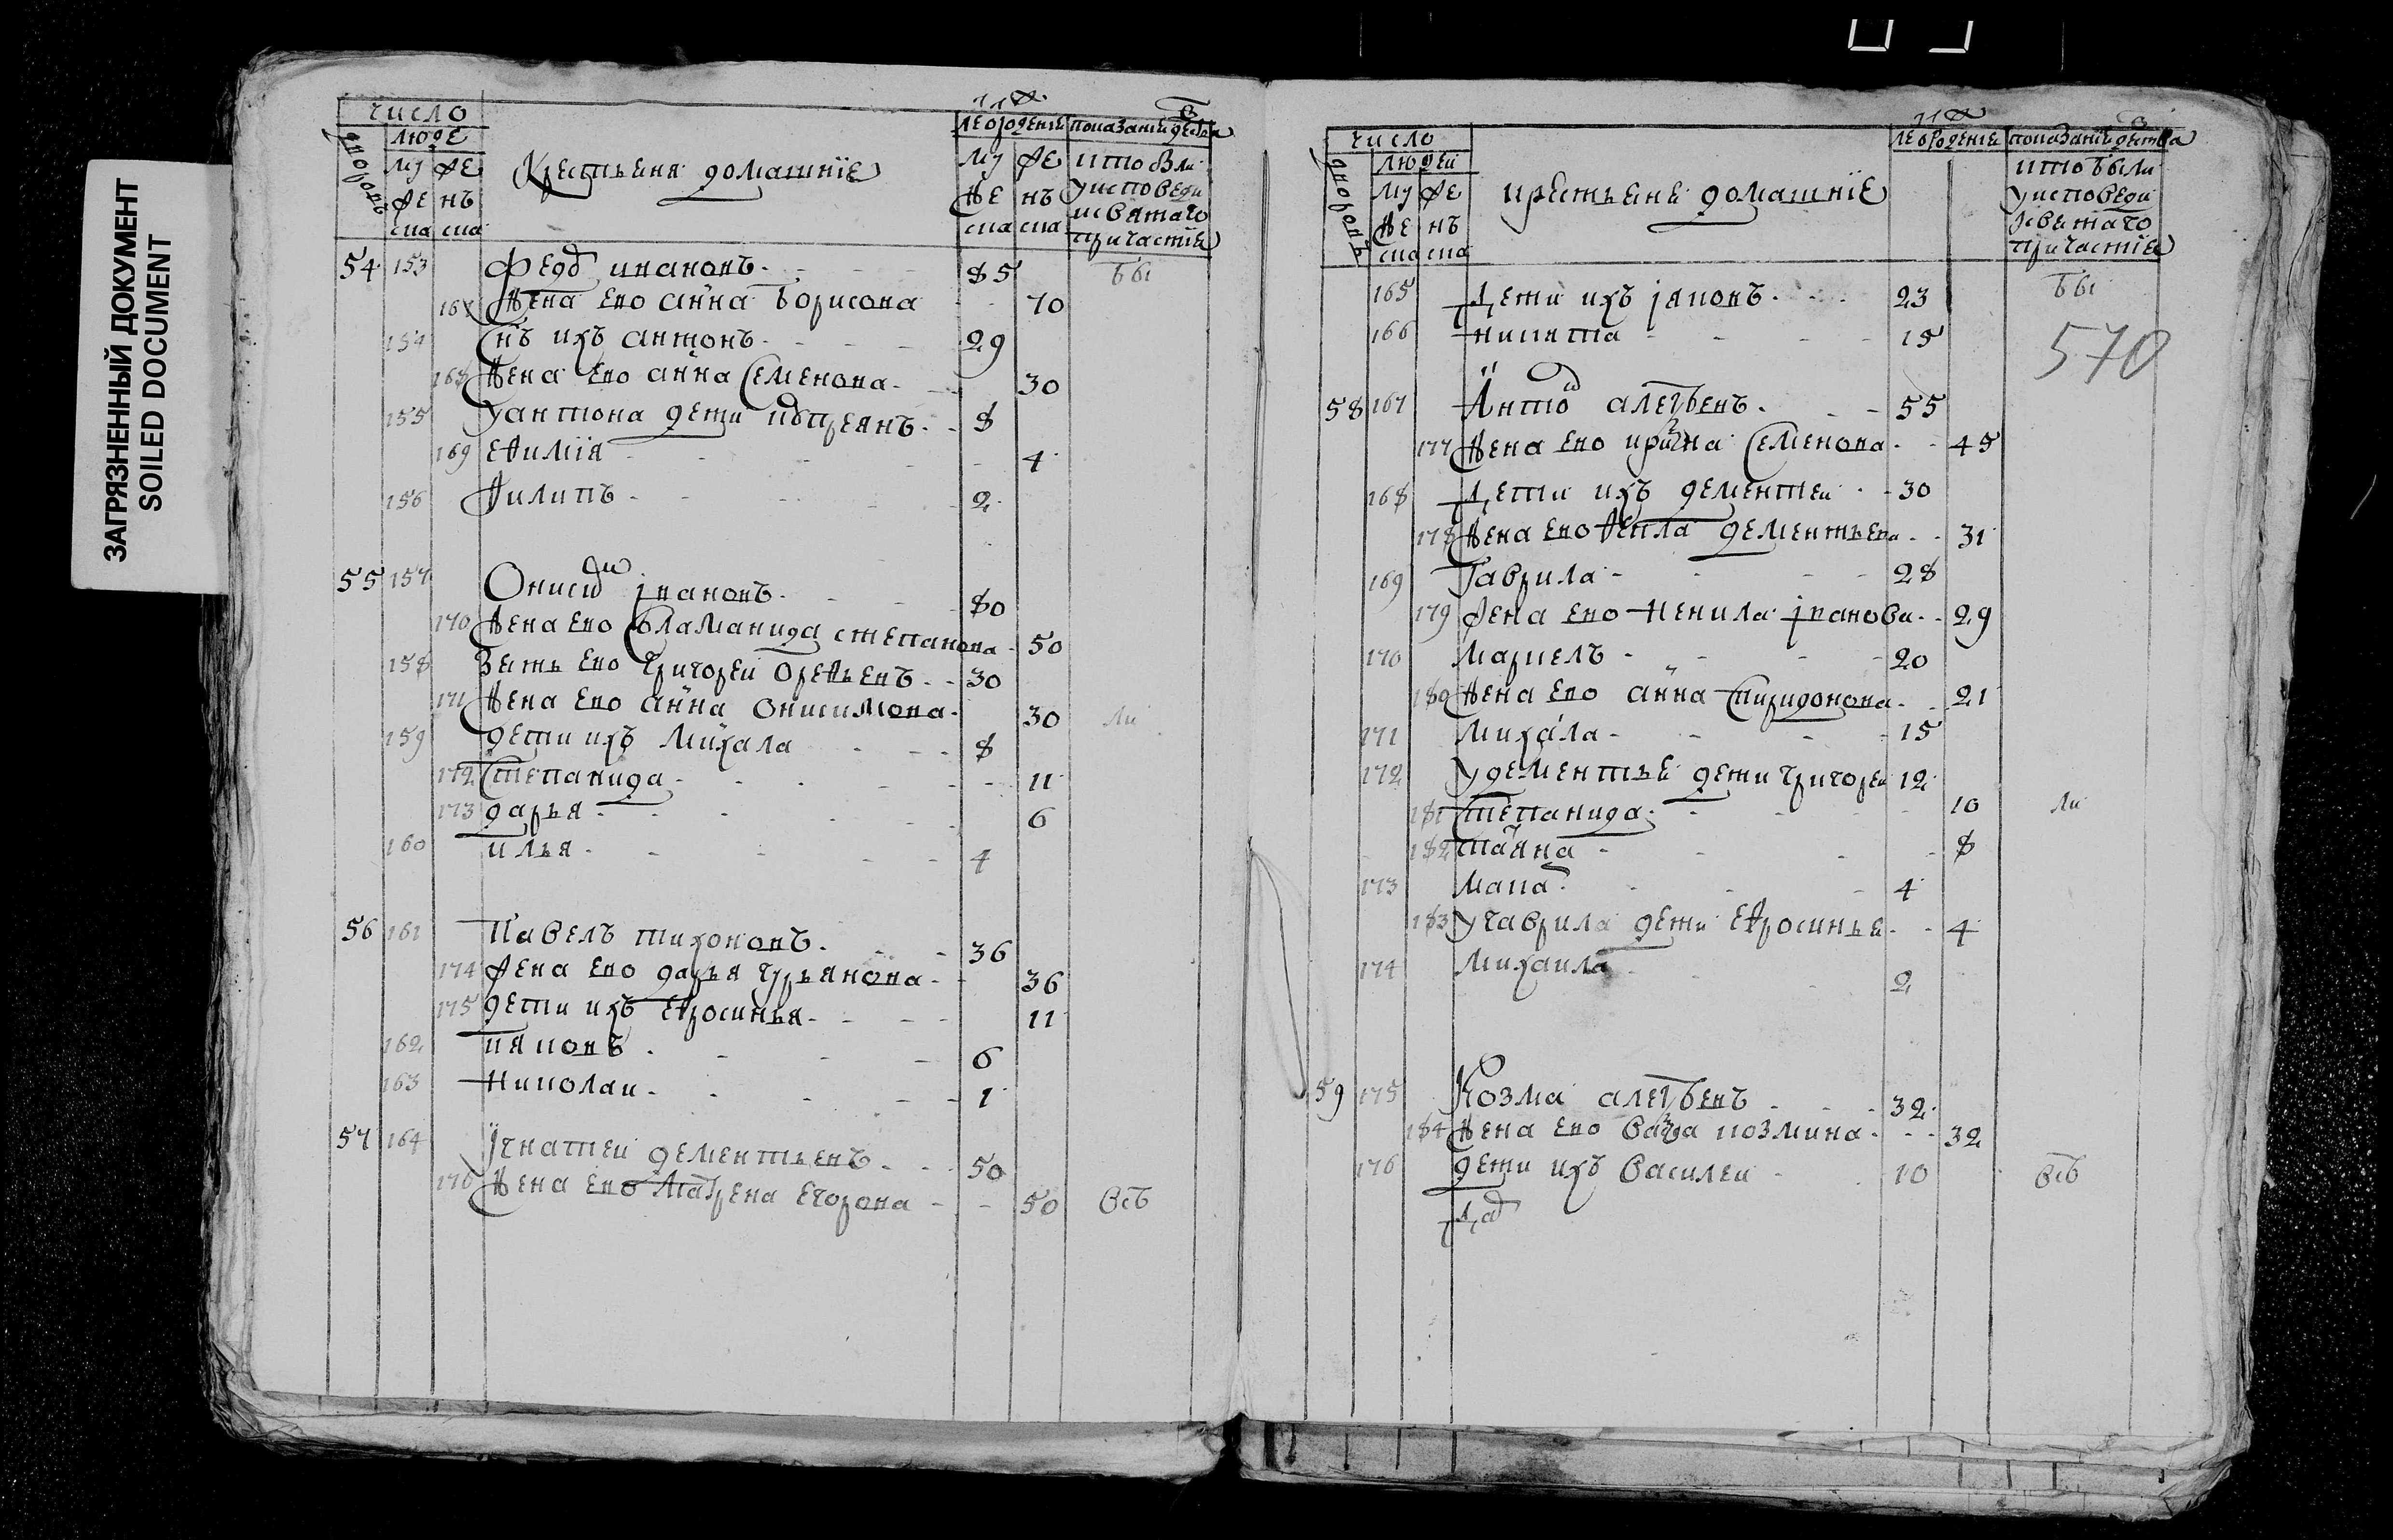 ЗАГРЯЗНЕННЫЙ ДОКУМЕНТ
SOILED DOCUMENT
число
люде
дворовъ
му же
же нъ
ска ска
Крестьяня домашнїе
лѣ рожденїе
му же
же нъ
ска ска
показанїе действа
кто были
у исповеди
и святаго
причастїя
54 153 Федо ивановъ 85 бы
167 Жена ево анна борисова 70
154 Снъ ихъ антонъ 29
168 Жена ево анна Семенова 30
155 у антона дети киреянъ 8
169 еѳимїя 4
156 Филипъ 2
55 157 Ониси јвановъ 80
170 Жена ево Соламанида степанова 50
158 Зеть ево Григореи Ореѳьевъ 30
171 Жена ево анна онисимова 30 ли
159 дети ихъ михаила 8
172 Степанида 11
173 дарья 6
160 илья 4
56 161 Павелъ тихоновъ 36
174 жена ево дарья гурьянова 36
175 дети ихъ еѳросинья 11
162 иаковъ 6
163 николаи 1
57 164 Игнатеи дементьевъ 50
176 Жена ево Матрена егорова 50 всѣ
число
людеи
дворовъ
му же
же нъ
ска ска
крестьяне домашнїе
лѣ рожденїе
показанїе действа
кто были
у исповеди
и светаго
причастїя
165 Дети ихъ јаковъ 23 бы
166 никита 15
570
58 167 Антои алеѯѣевъ 55
177 Жена ево ирина Семенова 45
168 Дети ихъ дементеи 30
178 Жена ево ѳекла дементьева 31
169 Гаврила 28
179 жена ево Ненила јванова 29
170 маркелъ 20
180 Жена ево анна Спиридонова 21
171 михаила 15
172 у дементье дети григореи 12
181 Степанида 10 ли
182 татьяна 8
173 мака 4
183 у гаврила дети еѳросинье 4
174 михаила 2
59 175 Козма алеѯѣевъ 32
184 Жена ево Варвара козмина 32
176 дети ихъ василеи 10 всѣ